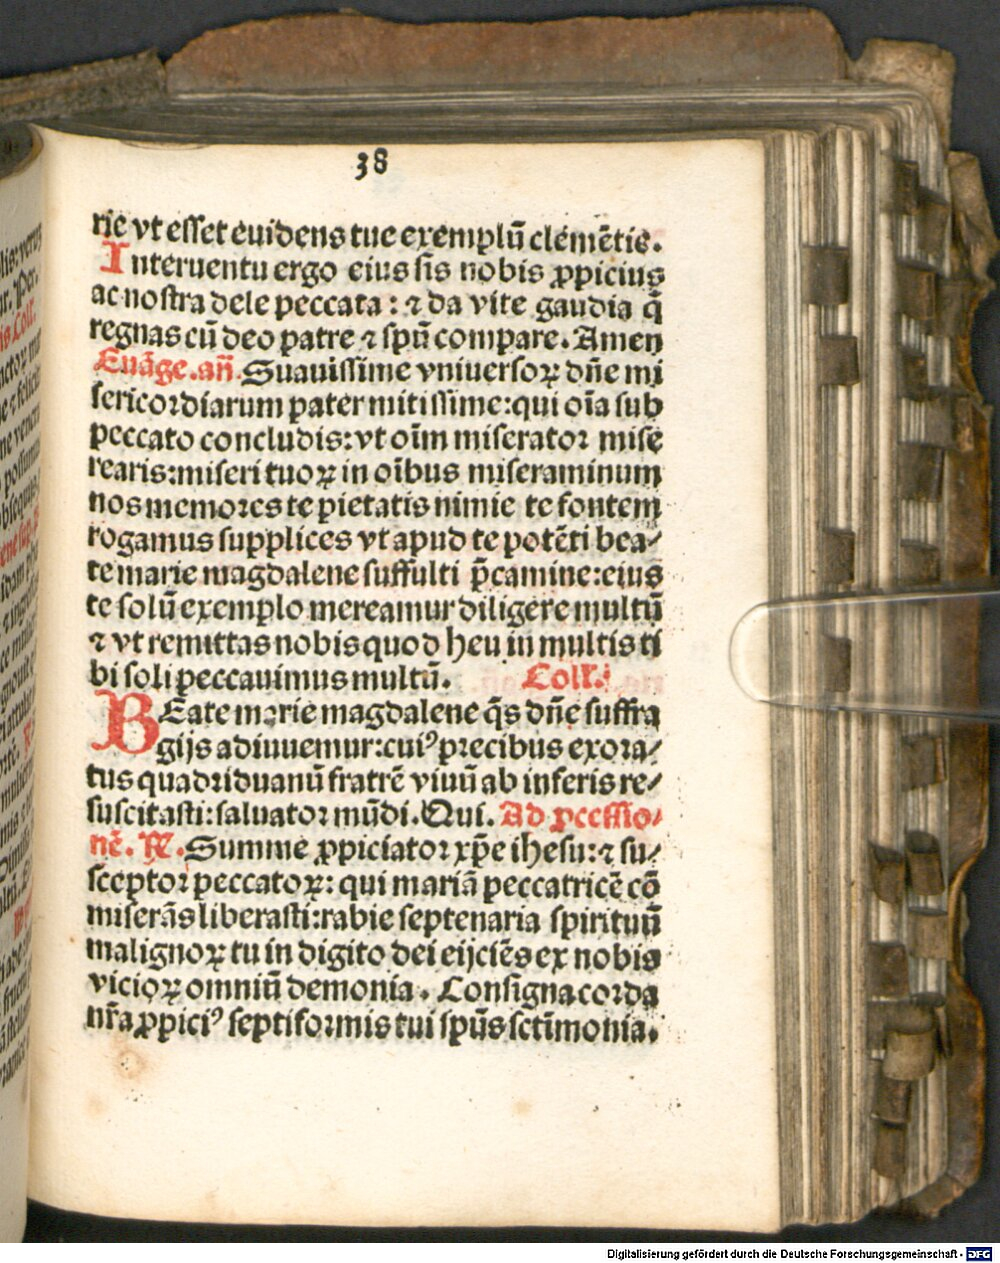 38
rie vt esset euidens tue exemplū clemētie.
Interuentu ergo eius sis nobis ꝓpicius
ac nostra dele peccata : ⁊ da vite gaudia q̄
regnas cū deo patre ⁊ spū compare. Amen
Euāge. an̄. Suauissime vniuersoꝝ dn̄e mi
sericordiarum pater mitissime: qui oīa sub
peccato concludis: vt oīm miserator mise
rearis: miseri tuoꝝ in oībus miseraminum
nos memores te pietatis nimie te fontem
rogamus supplices vt apud te potēti bea-
te marie magdalene suffulti p̄camine: eius
te solū exemplo mereamur diligere multū
⁊ vt remittas nobis quod heu in multis ti
bi soli peccauimus multū. Coll.
BEate marie magdalene q̄s dn̄e suffra
gijs adiuuemur: cuiꝰ precibus exora-
tus quadriduanū fratrē viuū ab inferis re-
suscitasti: saluator mūdi. Qui. Ad ꝓcessio-
nē. R. Summe ꝓpiciator xp̄e ihesu: ⁊ su-
sceptor peccatoꝝ: qui mariā peccatricē cō
miserās liberasti: rabie septenaria spirituū
malignoꝝ tu in digito dei eijciēs ex nobis
vicioꝝ omniū demonia. Consigna corda
nr̄a ꝓpiciꝰ septiformis tui spūs sctīmonia.
Digitalisierung gefördert durch die Deutsche Forschungsgemeinschaft - DFG